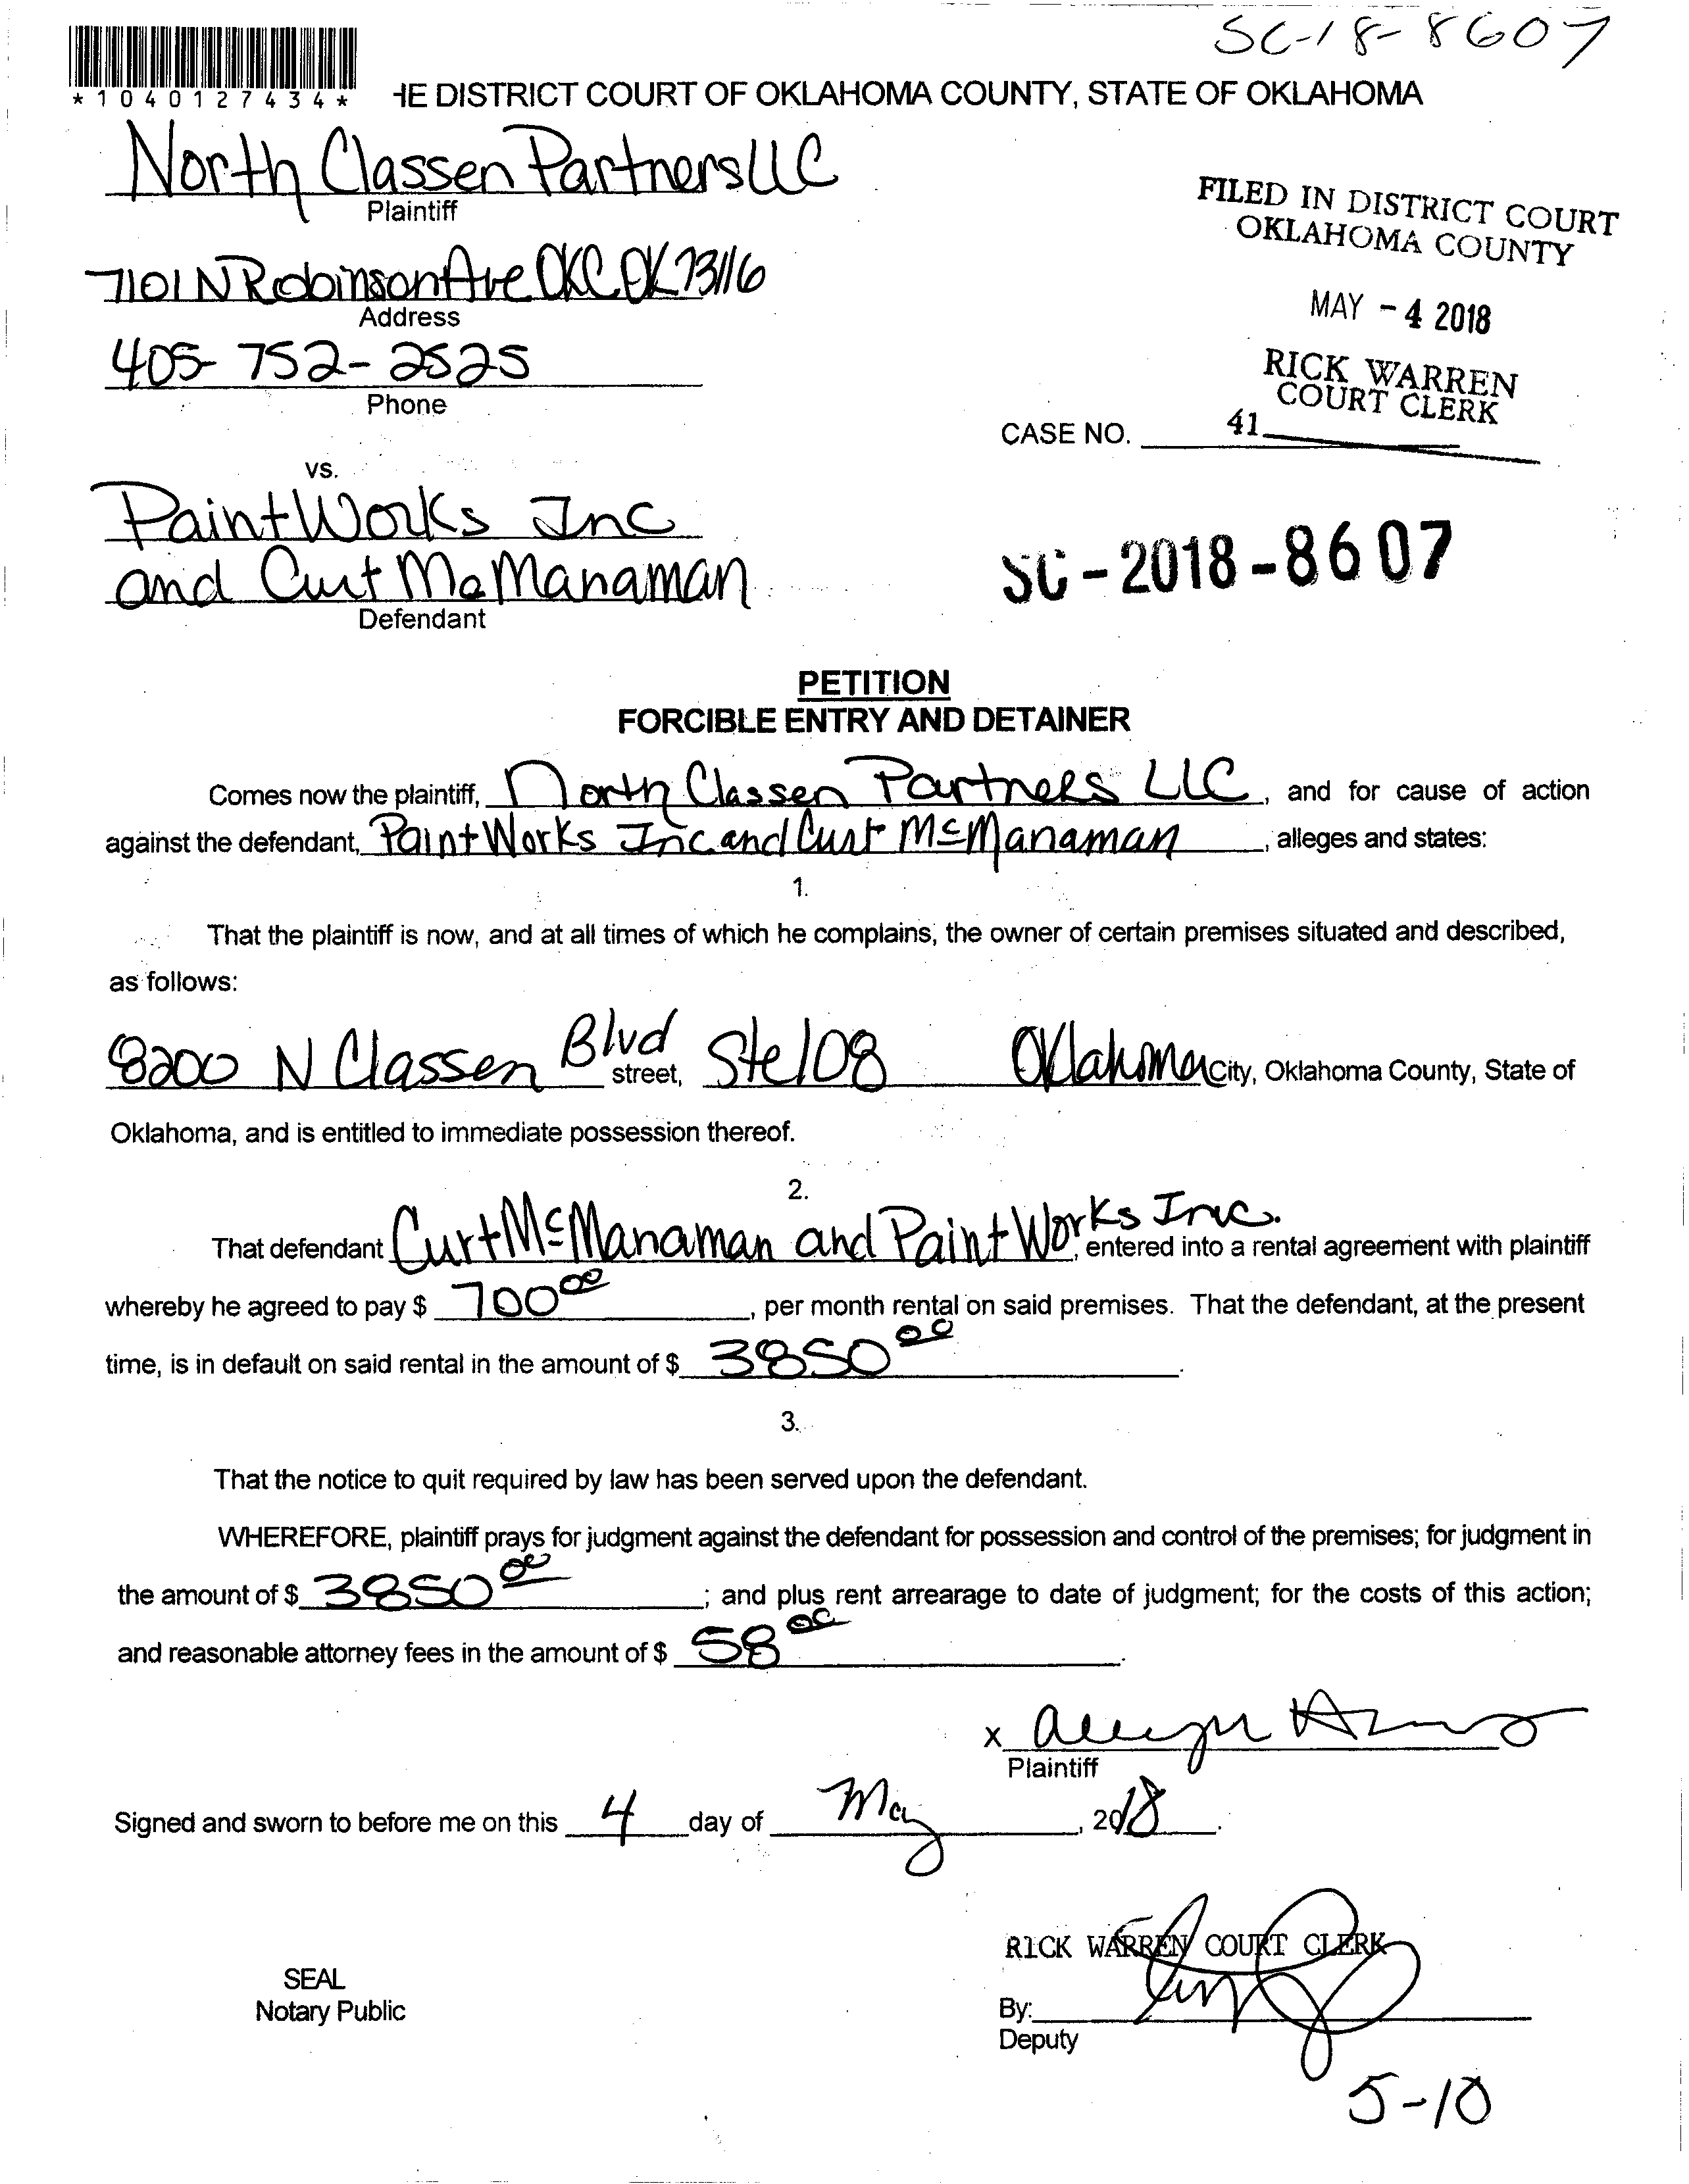 SC-18-8607
*1040127434*
HE DISTRICT COURT OF OKLAHOMA COUNTY, STATE OF OKLAHOMA
North Classen Partners LLC
Plaintiff
FILED IN DISTRICT COURT
OKLAHOMA COUNTY
7101 N Robinson Ave OKC OK 73116
Address
MAY - 4 2018
405-752-2525
Phone
RICK WARREN
COURT CLERK
CASE NO. 41
vs.
PaintWorks Inc
and Curt McManaman
Defendant
SC-2018-8607
PETITION
FORCIBLE ENTRY AND DETAINER
Comes now the plaintiff, North Classen Partners LLC, and for cause of action
against the defendant, PaintWorks Inc and Curt McManaman, alleges and states:
1.
That the plaintiff is now, and at all times of which he complains, the owner of certain premises situated and described,
as follows:
8200 N Classen Blvd street, Ste 108 Oklahoma City, Oklahoma County, State of
Oklahoma, and is entitled to immediate possession thereof.
2.
That defendant Curt McManaman and PaintWorks Inc., entered into a rental agreement with plaintiff
whereby he agreed to pay $ 700 00, per month rental on said premises. That the defendant, at the present
time, is in default on said rental in the amount of $ 3850 00.
3.
That the notice to quit required by law has been served upon the defendant.
WHEREFORE, plaintiff prays for judgment against the defendant for possession and control of the premises; for judgment in
the amount of $ 3850 00; and plus rent arrearage to date of judgment; for the costs of this action;
and reasonable attorney fees in the amount of $ 58 00.
x
Plaintiff
Signed and sworn to before me on this 4 day of May, 2018.
RICK WARREN COURT CLERK
SEAL
Notary Public
By:
Deputy
5-10